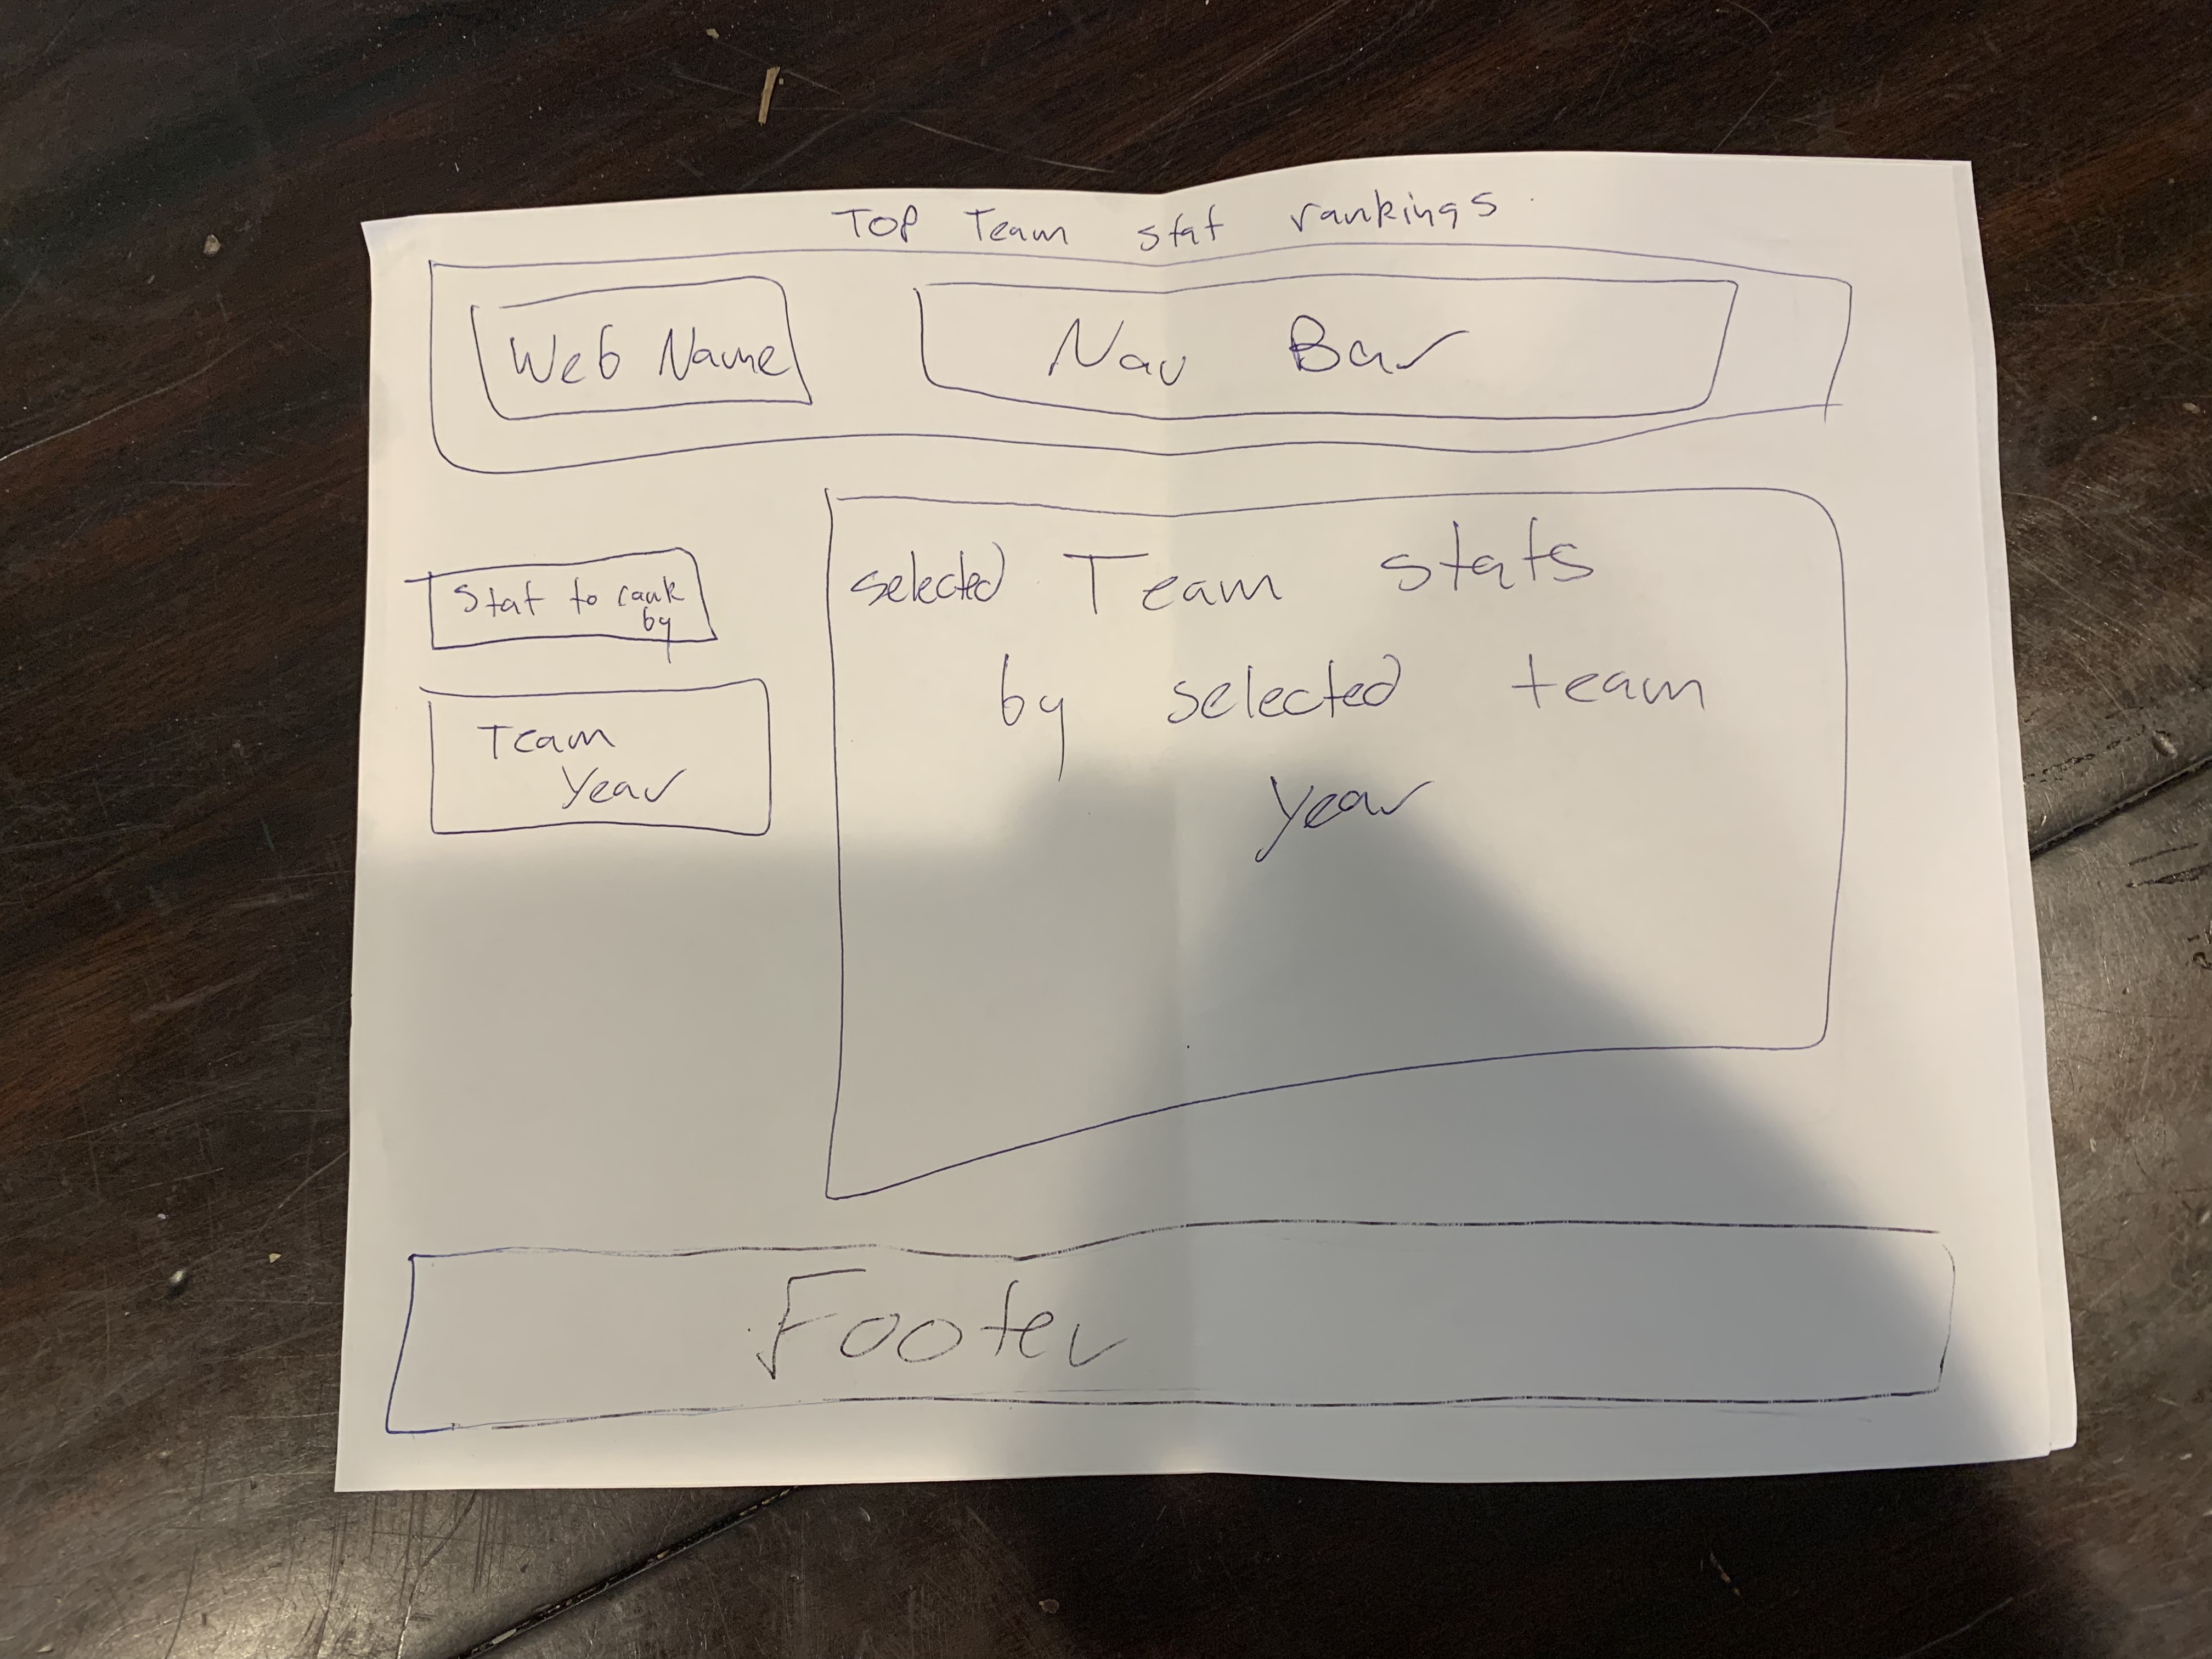 TOP Team stat rankings
Web Name
Nav Bar
Stat to rank
by
Team
Year
selected Team stats
by selected team
year
Footer